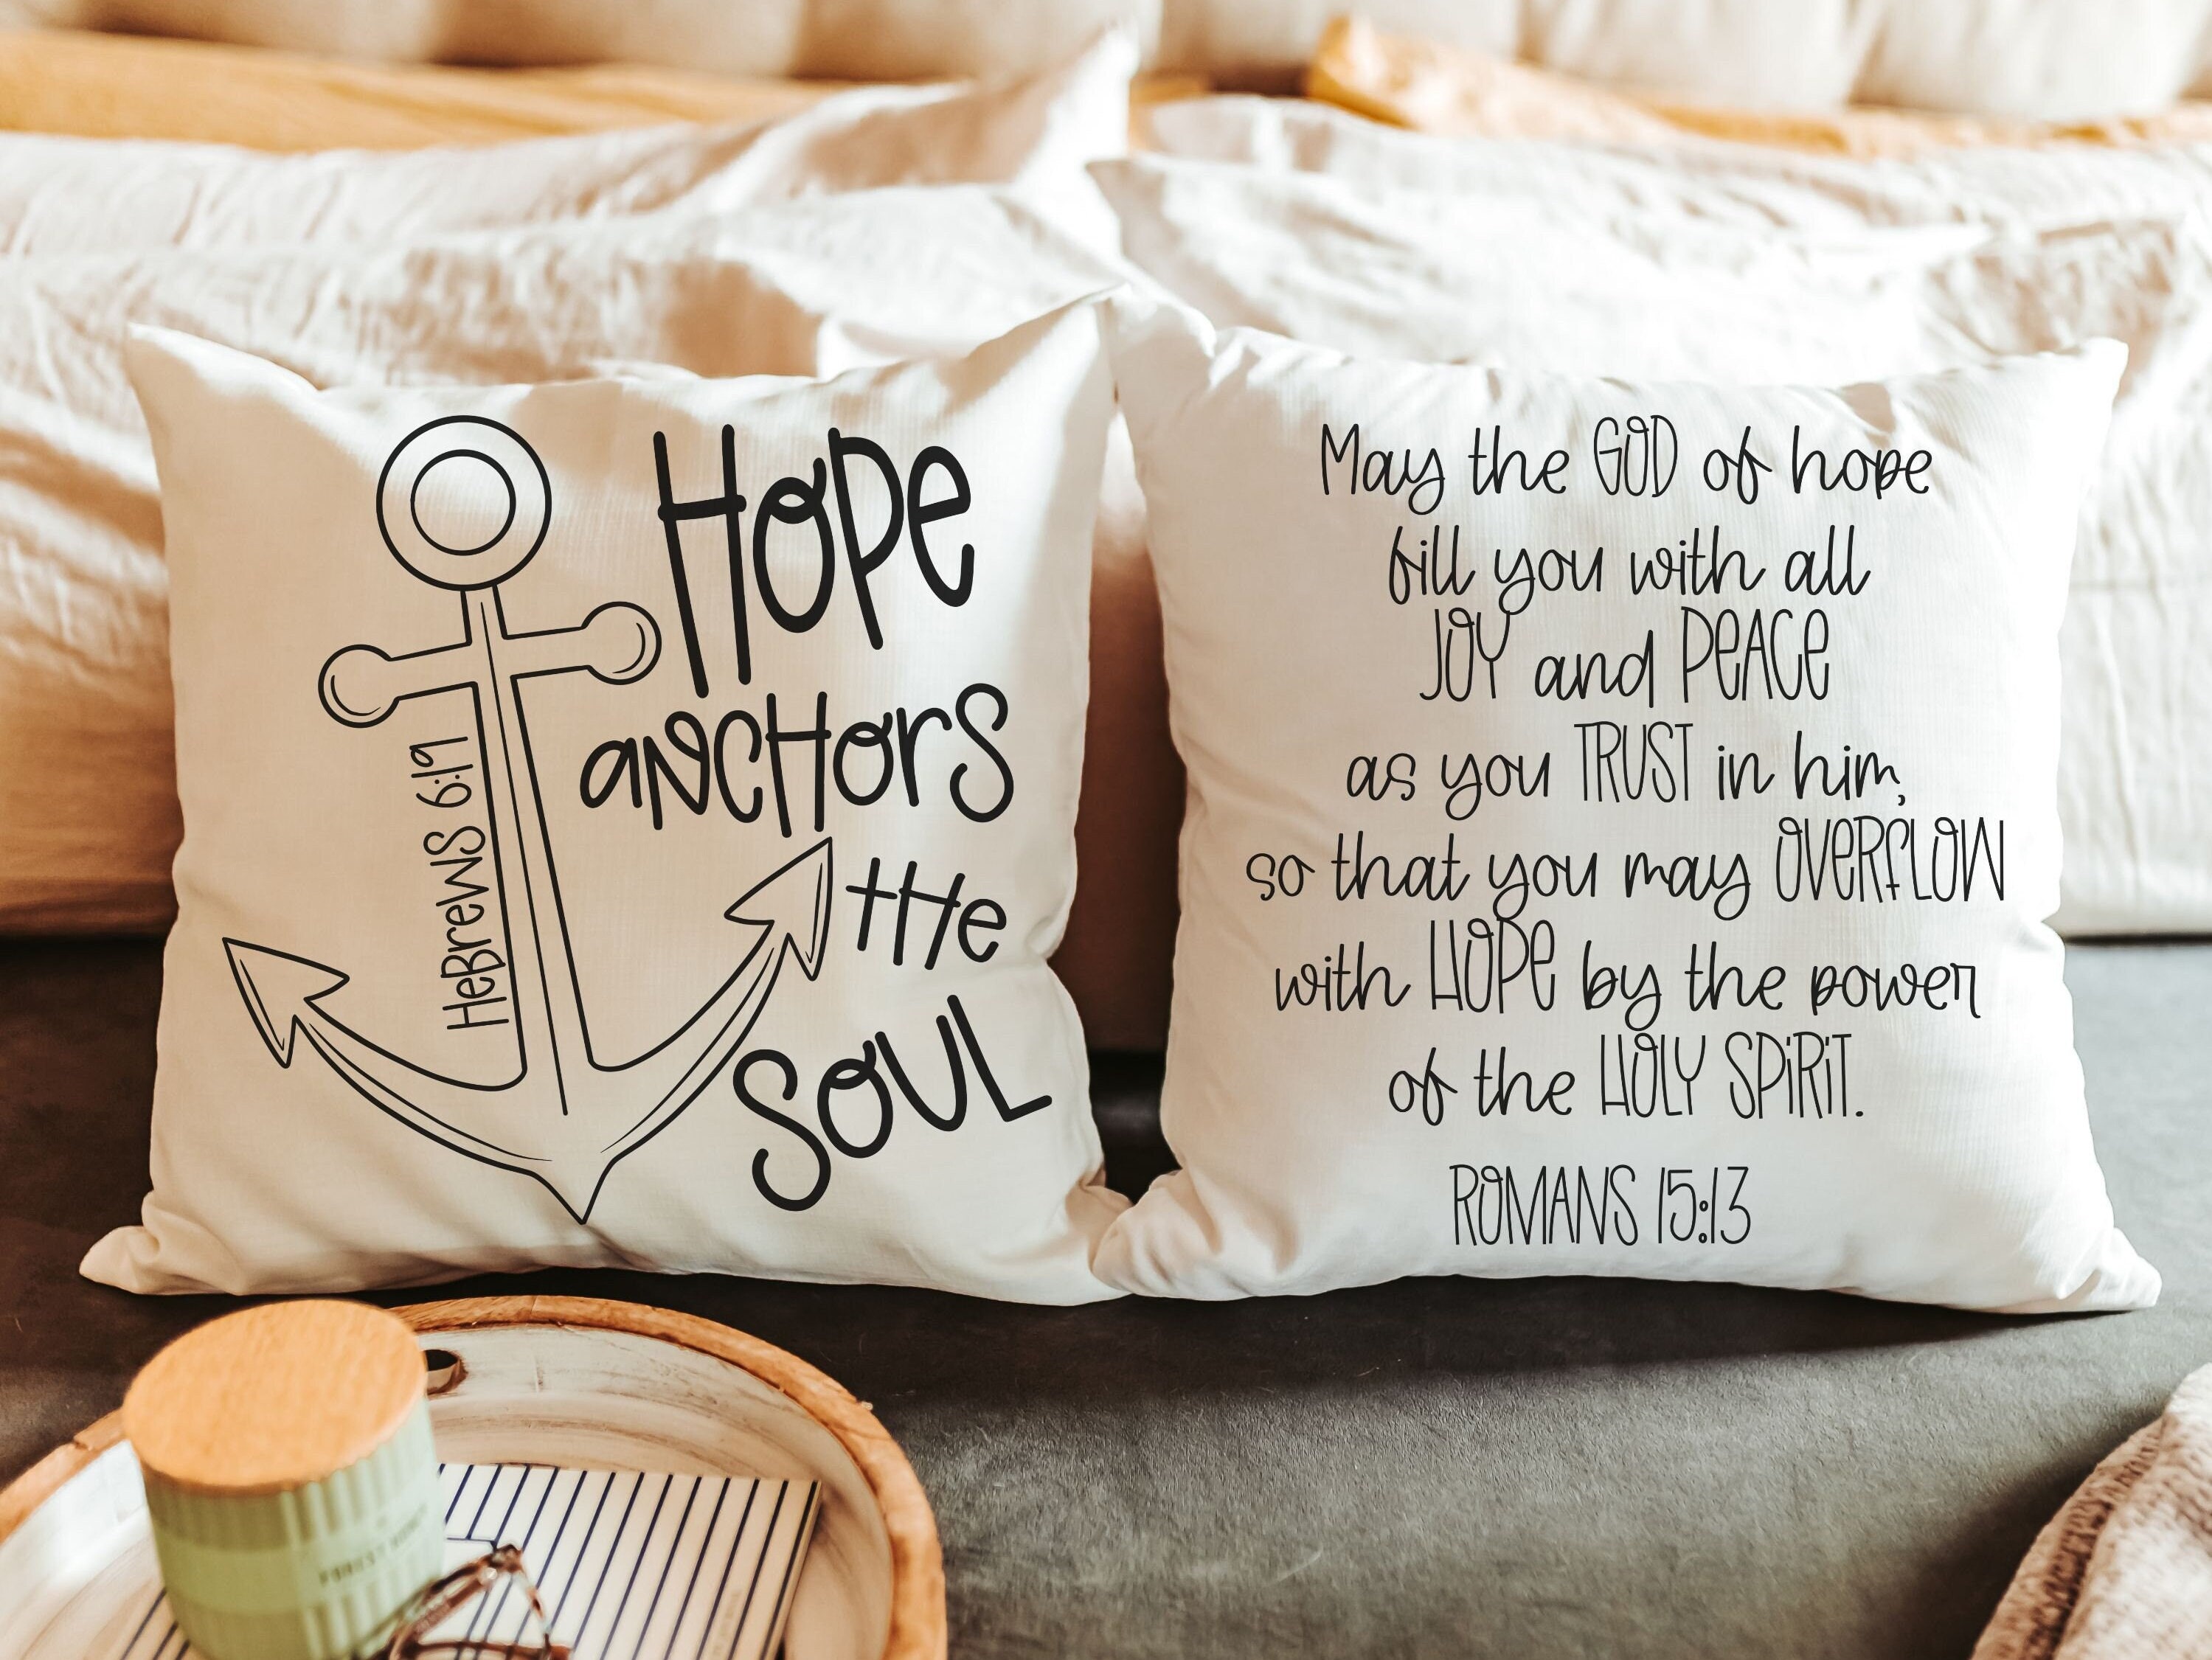 Hope
anchors
the
Soul
Hebrews 6:19
May the GOD of hope
fill you with all
JOY and PEACE
as you TRUST in him,
so that you may OVERFLOW
with HOPE by the power
of the HOLY SPIRIT.
ROMANS 15:13